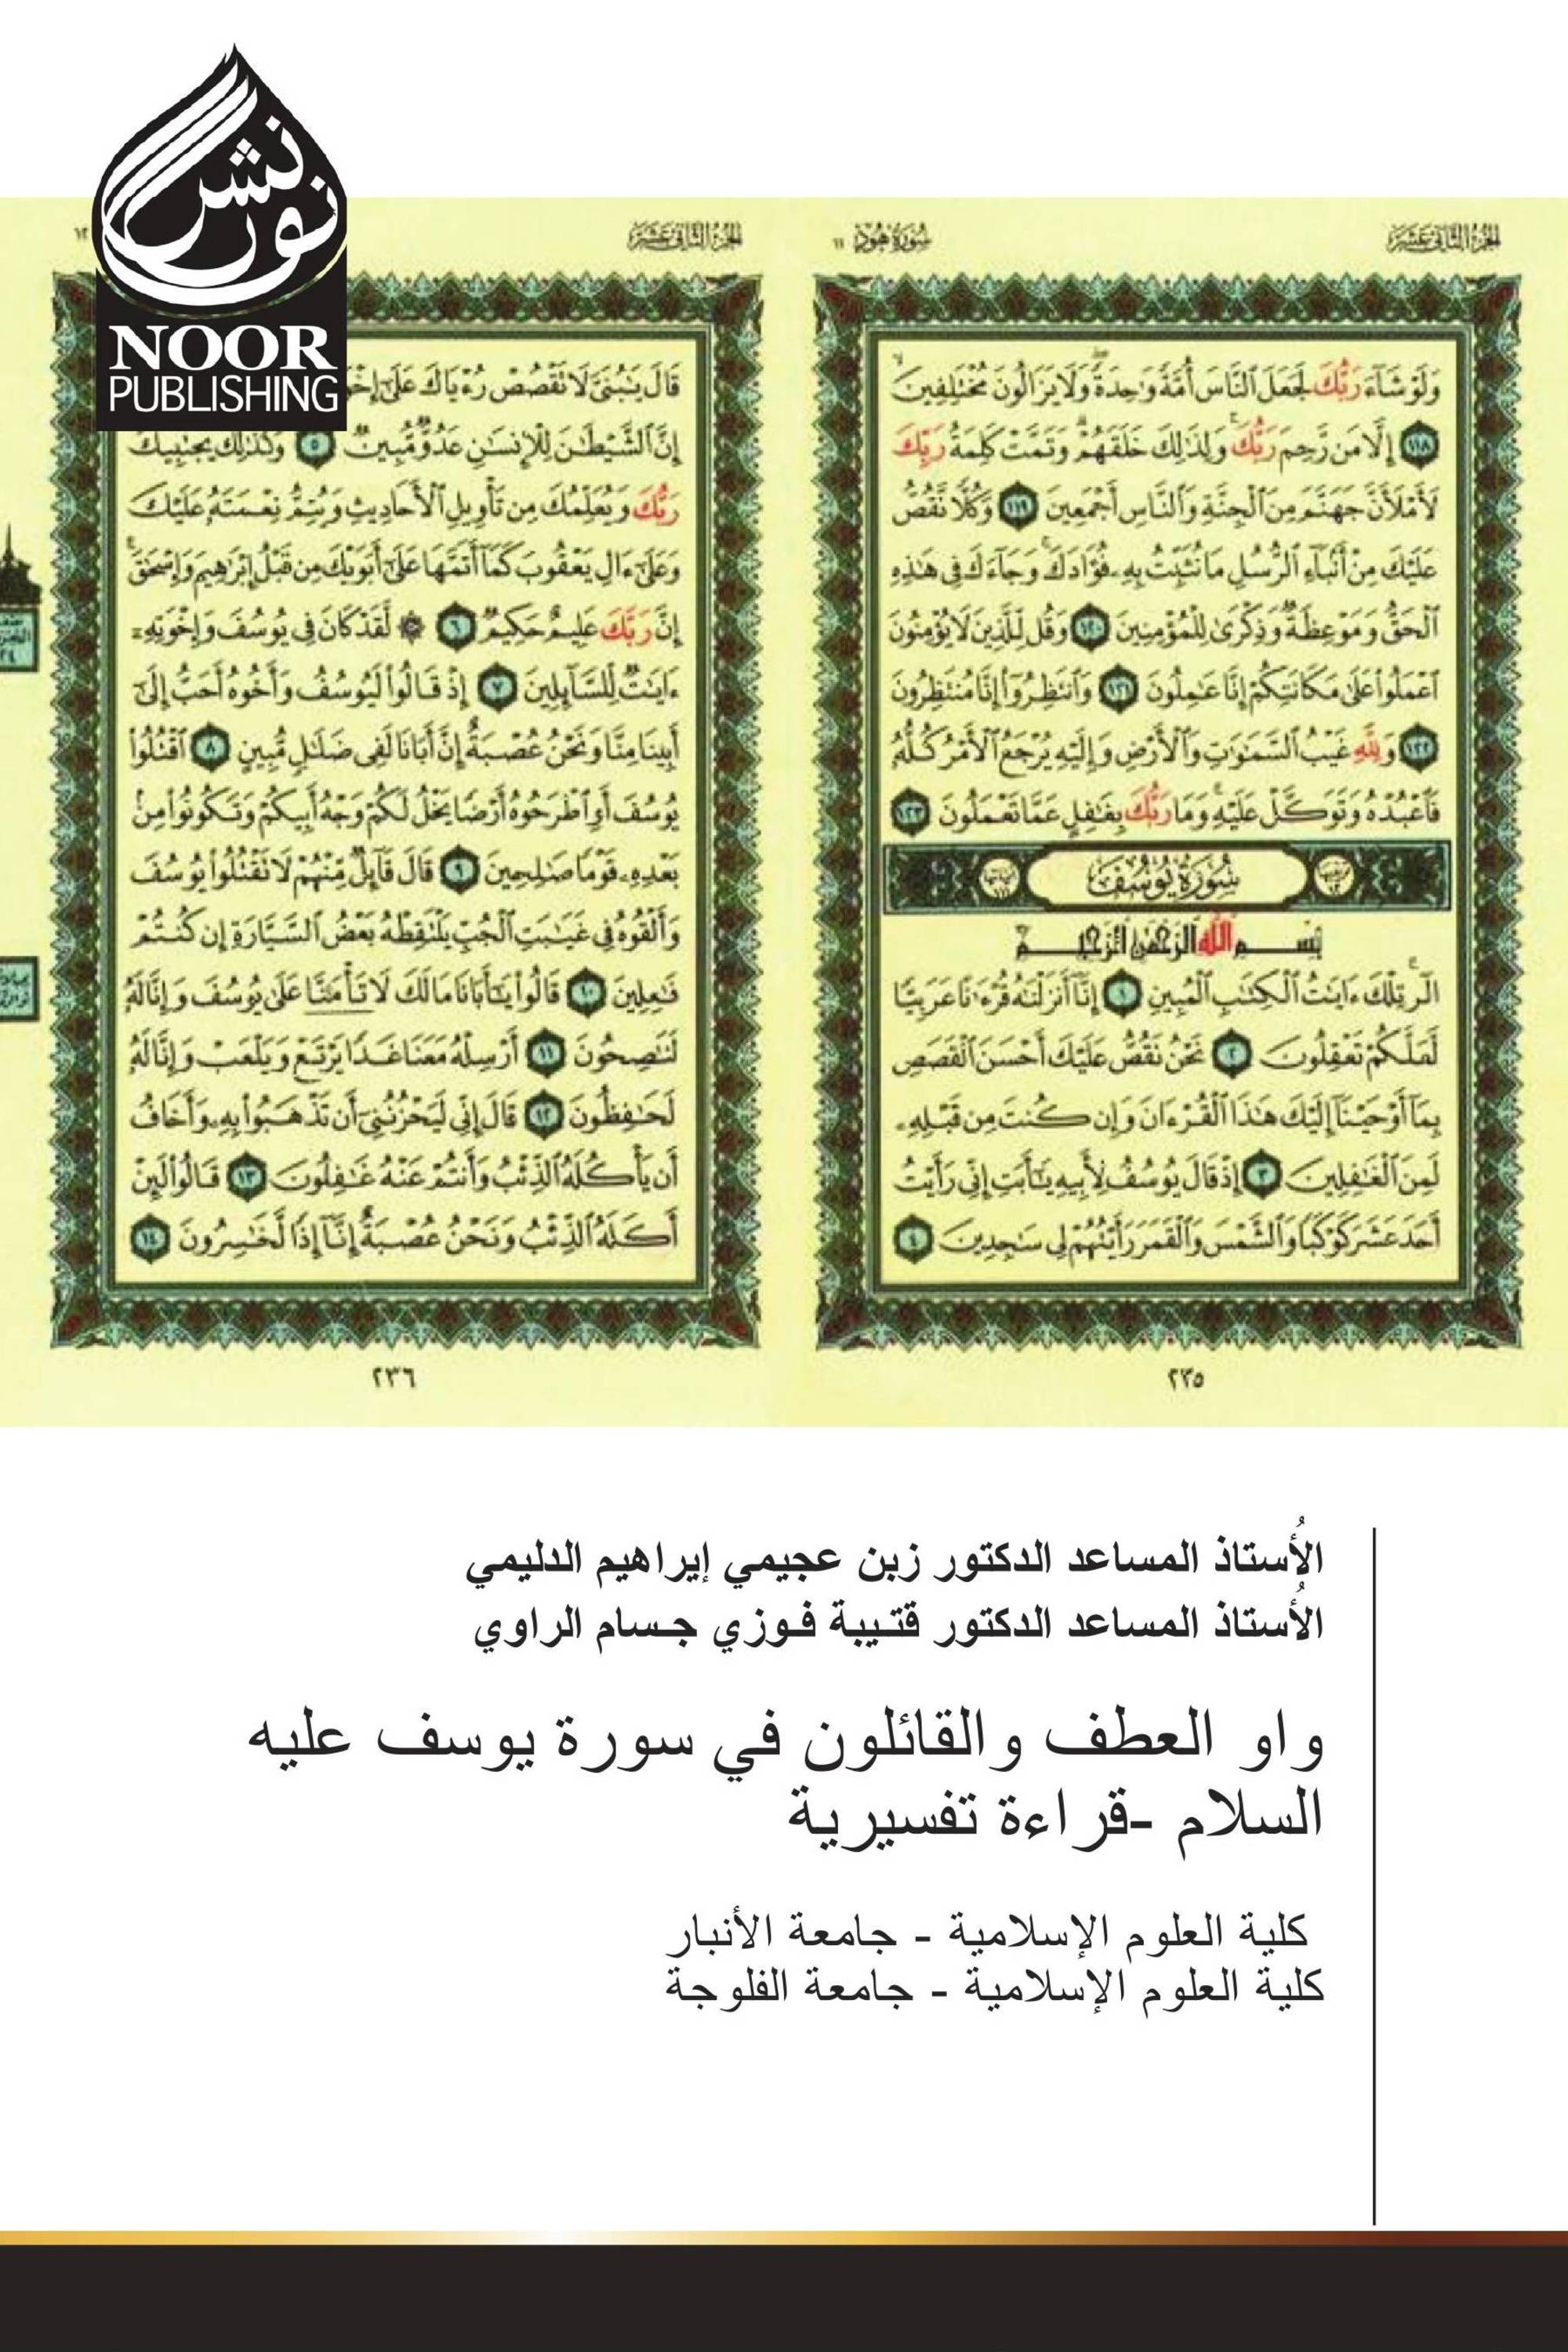 نور نشر
NOOR
PUBLISHING
الجزء الثاني عشر
سورة هود ١١
وَلَوْ شَآءَ رَبُّكَ لَجَعَلَ ٱلنَّاسَ أُمَّةً وَٰحِدَةً وَلَا يَزَالُونَ مُخْتَلِفِينَ
١١٨ إِلَّا مَن رَّحِمَ رَبُّكَ وَلِذَٰلِكَ خَلَقَهُمْ وَتَمَّتْ كَلِمَةُ رَبِّكَ
لَأَمْلَأَنَّ جَهَنَّمَ مِنَ ٱلْجِنَّةِ وَٱلنَّاسِ أَجْمَعِينَ ١١٩ وَكُلًّا نَّقُصُّ
عَلَيْكَ مِنْ أَنۢبَآءِ ٱلرُّسُلِ مَا نُثَبِّتُ بِهِۦ فُؤَادَكَ وَجَآءَكَ فِى هَٰذِهِ
ٱلْحَقُّ وَمَوْعِظَةٌ وَذِكْرَىٰ لِلْمُؤْمِنِينَ ١٢٠ وَقُل لِّلَّذِينَ لَا يُؤْمِنُونَ
ٱعْمَلُوا۟ عَلَىٰ مَكَانَتِكُمْ إِنَّا عَٰمِلُونَ ١٢١ وَٱنتَظِرُوٓا۟ إِنَّا مُنتَظِرُونَ
١٢٢ وَلِلَّهِ غَيْبُ ٱلسَّمَٰوَٰتِ وَٱلْأَرْضِ وَإِلَيْهِ يُرْجَعُ ٱلْأَمْرُ كُلُّهُۥ
فَٱعْبُدْهُ وَتَوَكَّلْ عَلَيْهِ وَمَا رَبُّكَ بِغَٰفِلٍ عَمَّا تَعْمَلُونَ ١٢٣
سُورَةُ يُوسُفَ
بِسْمِ ٱللَّهِ ٱلرَّحْمَٰنِ ٱلرَّحِيمِ
الٓر تِلْكَ ءَايَٰتُ ٱلْكِتَٰبِ ٱلْمُبِينِ ١ إِنَّآ أَنزَلْنَٰهُ قُرْءَٰنًا عَرَبِيًّا
لَّعَلَّكُمْ تَعْقِلُونَ ٢ نَحْنُ نَقُصُّ عَلَيْكَ أَحْسَنَ ٱلْقَصَصِ
بِمَآ أَوْحَيْنَآ إِلَيْكَ هَٰذَا ٱلْقُرْءَانَ وَإِن كُنتَ مِن قَبْلِهِۦ
لَمِنَ ٱلْغَٰفِلِينَ ٣ إِذْ قَالَ يُوسُفُ لِأَبِيهِ يَٰٓأَبَتِ إِنِّى رَأَيْتُ
أَحَدَ عَشَرَ كَوْكَبًا وَٱلشَّمْسَ وَٱلْقَمَرَ رَأَيْتُهُمْ لِى سَٰجِدِينَ ٤
٢٣٥
الجزء الثاني عشر
١٢
قَالَ يَٰبُنَىَّ لَا تَقْصُصْ رُءْيَاكَ عَلَىٰٓ إِخْوَ
إِنَّ ٱلشَّيْطَٰنَ لِلْإِنسَٰنِ عَدُوٌّ مُّبِينٌ ٥ وَكَذَٰلِكَ يَجْتَبِيكَ
رَبُّكَ وَيُعَلِّمُكَ مِن تَأْوِيلِ ٱلْأَحَادِيثِ وَيُتِمُّ نِعْمَتَهُۥ عَلَيْكَ
وَعَلَىٰٓ ءَالِ يَعْقُوبَ كَمَآ أَتَمَّهَا عَلَىٰٓ أَبَوَيْكَ مِن قَبْلُ إِبْرَٰهِيمَ وَإِسْحَٰقَ
إِنَّ رَبَّكَ عَلِيمٌ حَكِيمٌ ٦ ۞ لَّقَدْ كَانَ فِى يُوسُفَ وَإِخْوَتِهِۦٓ
ءَايَٰتٌ لِّلسَّآئِلِينَ ٧ إِذْ قَالُوا۟ لَيُوسُفُ وَأَخُوهُ أَحَبُّ إِلَىٰٓ
أَبِينَا مِنَّا وَنَحْنُ عُصْبَةٌ إِنَّ أَبَانَا لَفِى ضَلَٰلٍ مُّبِينٍ ٨ ٱقْتُلُوا۟
يُوسُفَ أَوِ ٱطْرَحُوهُ أَرْضًا يَخْلُ لَكُمْ وَجْهُ أَبِيكُمْ وَتَكُونُوا۟ مِنۢ
بَعْدِهِۦ قَوْمًا صَٰلِحِينَ ٩ قَالَ قَآئِلٌ مِّنْهُمْ لَا تَقْتُلُوا۟ يُوسُفَ
وَأَلْقُوهُ فِى غَيَٰبَتِ ٱلْجُبِّ يَلْتَقِطْهُ بَعْضُ ٱلسَّيَّارَةِ إِن كُنتُمْ
فَٰعِلِينَ ١٠ قَالُوا۟ يَٰٓأَبَانَا مَا لَكَ لَا تَأْمَ۫نَّا عَلَىٰ يُوسُفَ وَإِنَّا لَهُۥ
لَنَٰصِحُونَ ١١ أَرْسِلْهُ مَعَنَا غَدًا يَرْتَعْ وَيَلْعَبْ وَإِنَّا لَهُۥ
لَحَٰفِظُونَ ١٢ قَالَ إِنِّى لَيَحْزُنُنِىٓ أَن تَذْهَبُوا۟ بِهِۦ وَأَخَافُ
أَن يَأْكُلَهُ ٱلذِّئْبُ وَأَنتُمْ عَنْهُ غَٰفِلُونَ ١٣ قَالُوا۟ لَئِنْ
أَكَلَهُ ٱلذِّئْبُ وَنَحْنُ عُصْبَةٌ إِنَّآ إِذًا لَّخَٰسِرُونَ ١٤
٢٣٦
الأُستاذ المساعد الدكتور زبن عجيمي إيراهيم الدليمي
الأُستاذ المساعد الدكتور قتـيبة فـوزي جـسام الراوي
واو العطف والقائلون في سورة يوسف عليه
السلام -قراءة تفسيرية
كلية العلوم الإسلامية - جامعة الأنبار
كلية العلوم الإسلامية - جامعة الفلوجة